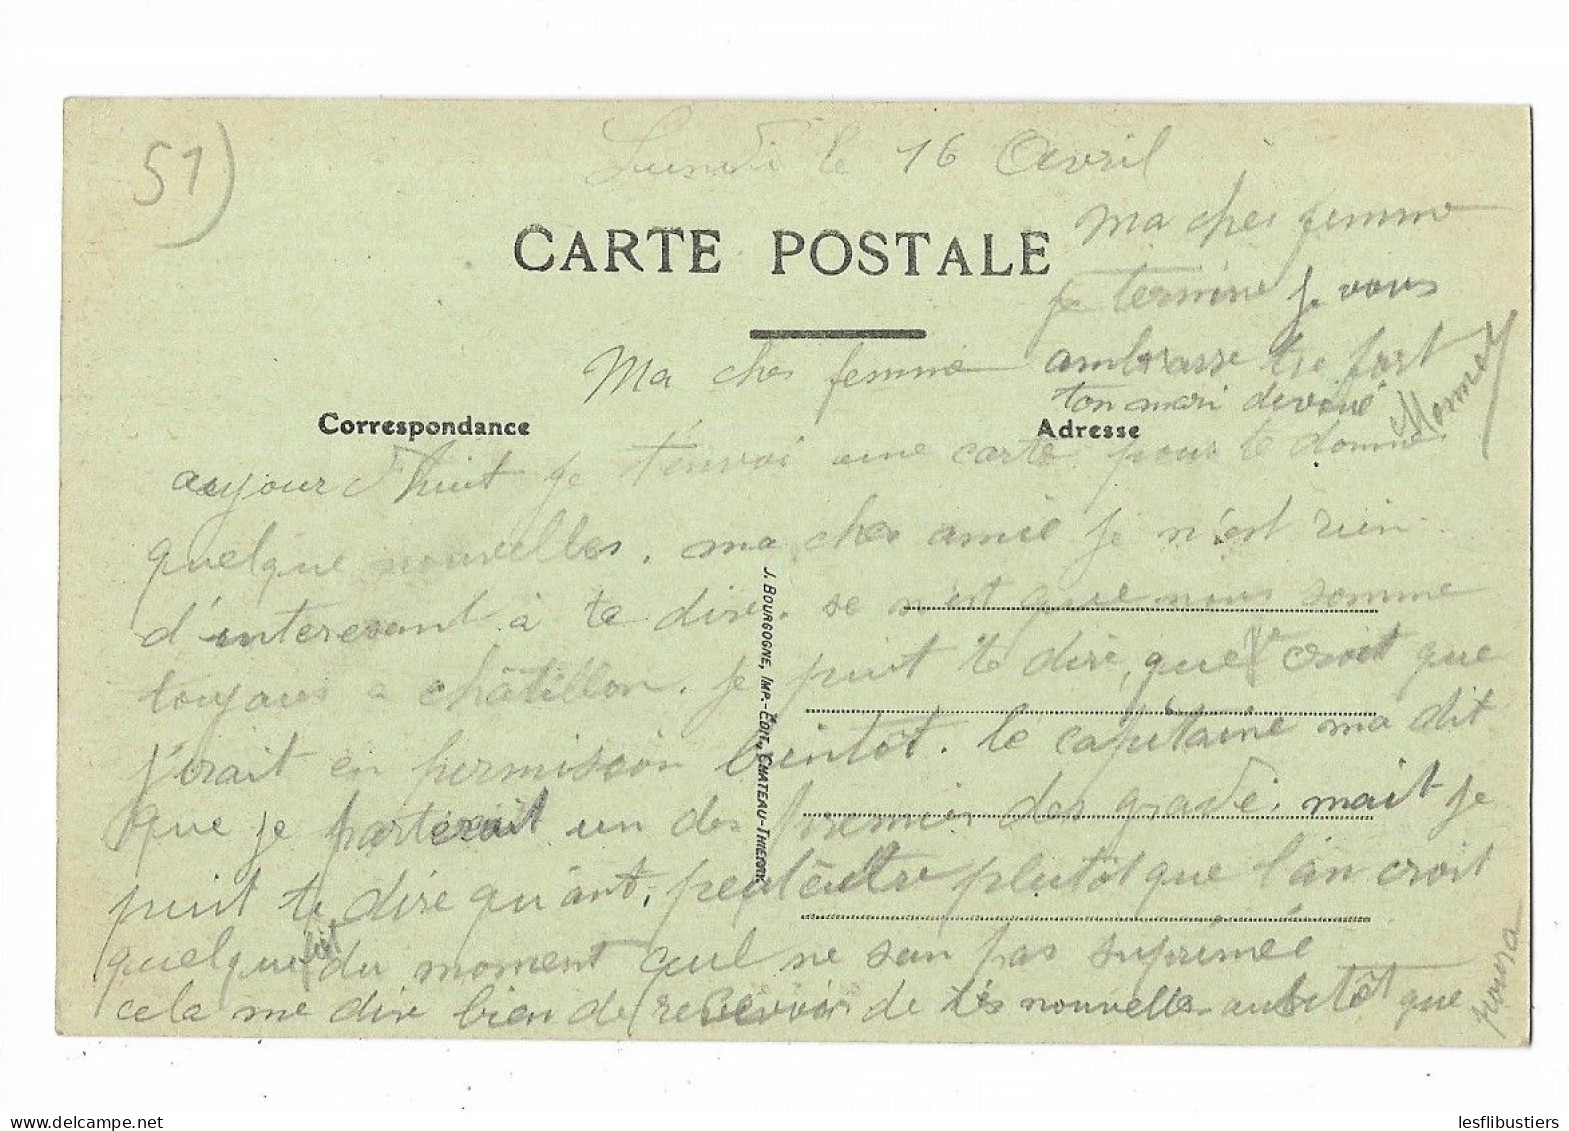 51)
Lundi le 16 Avril
CARTE POSTALE
Ma cher femme
Correspondance
Adresse
aujour d'huit je t'envoi une carte pour te donner
quelque nouvelles. ma cher amie je n'est rien
d'interesant à te dire. se n'est que nous somme
toujours a châtillon. je puit te dire, que je croit que
j'irait en permission bientôt. le capitaine ma dit
que je parterait un des premier des gradé. mait je
puit te dire qu'ant. peutêttre plutôt que l'an croit
quelque du moment qu'il ne son pas suprimée
cela me dire bien de recevoir de tes nouvelles ausitôt que
poura
ma cher femme
je termine je vous
ambrasse tre fort
ton mari devoué
J. BOURGOGNE, IMP.-ÉDIT., CHATEAU-THIERRY
lesflibustiers